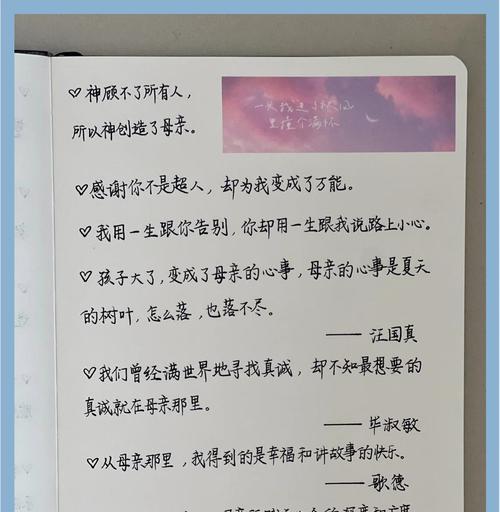 ♡神顾不了所有人，
所以神创造了母亲。
♡感谢你不是超人，却为我变成了万能。
♡我用一生跟你告别，你却用一生跟我说路上小心。
♡孩子大了，变成了母亲的心事，母亲的心事是夏天
的树叶，怎么落，也落不尽。
——汪国真
♡我们曾经满世界地寻找真诚，却不知最想要的
真诚就在母亲那里。
——毕淑敏
♡从母亲那里，我得到的是幸福和讲故事的快乐。
——歌德